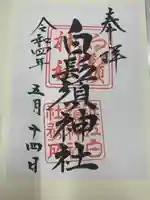 奉拝
白鬚神社
令和四年
五月十四日